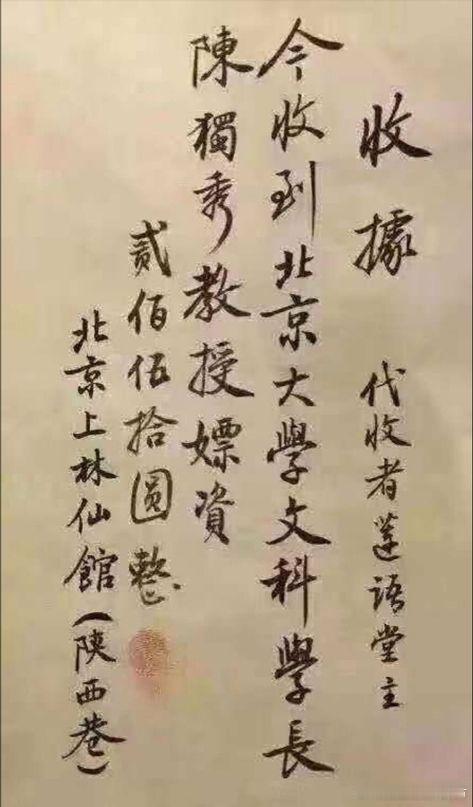 收據
代收者莲語堂主
今收到北京大學文科學長
陳獨秀教授嫖資
貳佰伍拾圓整
北京上林仙館(陝西巷)